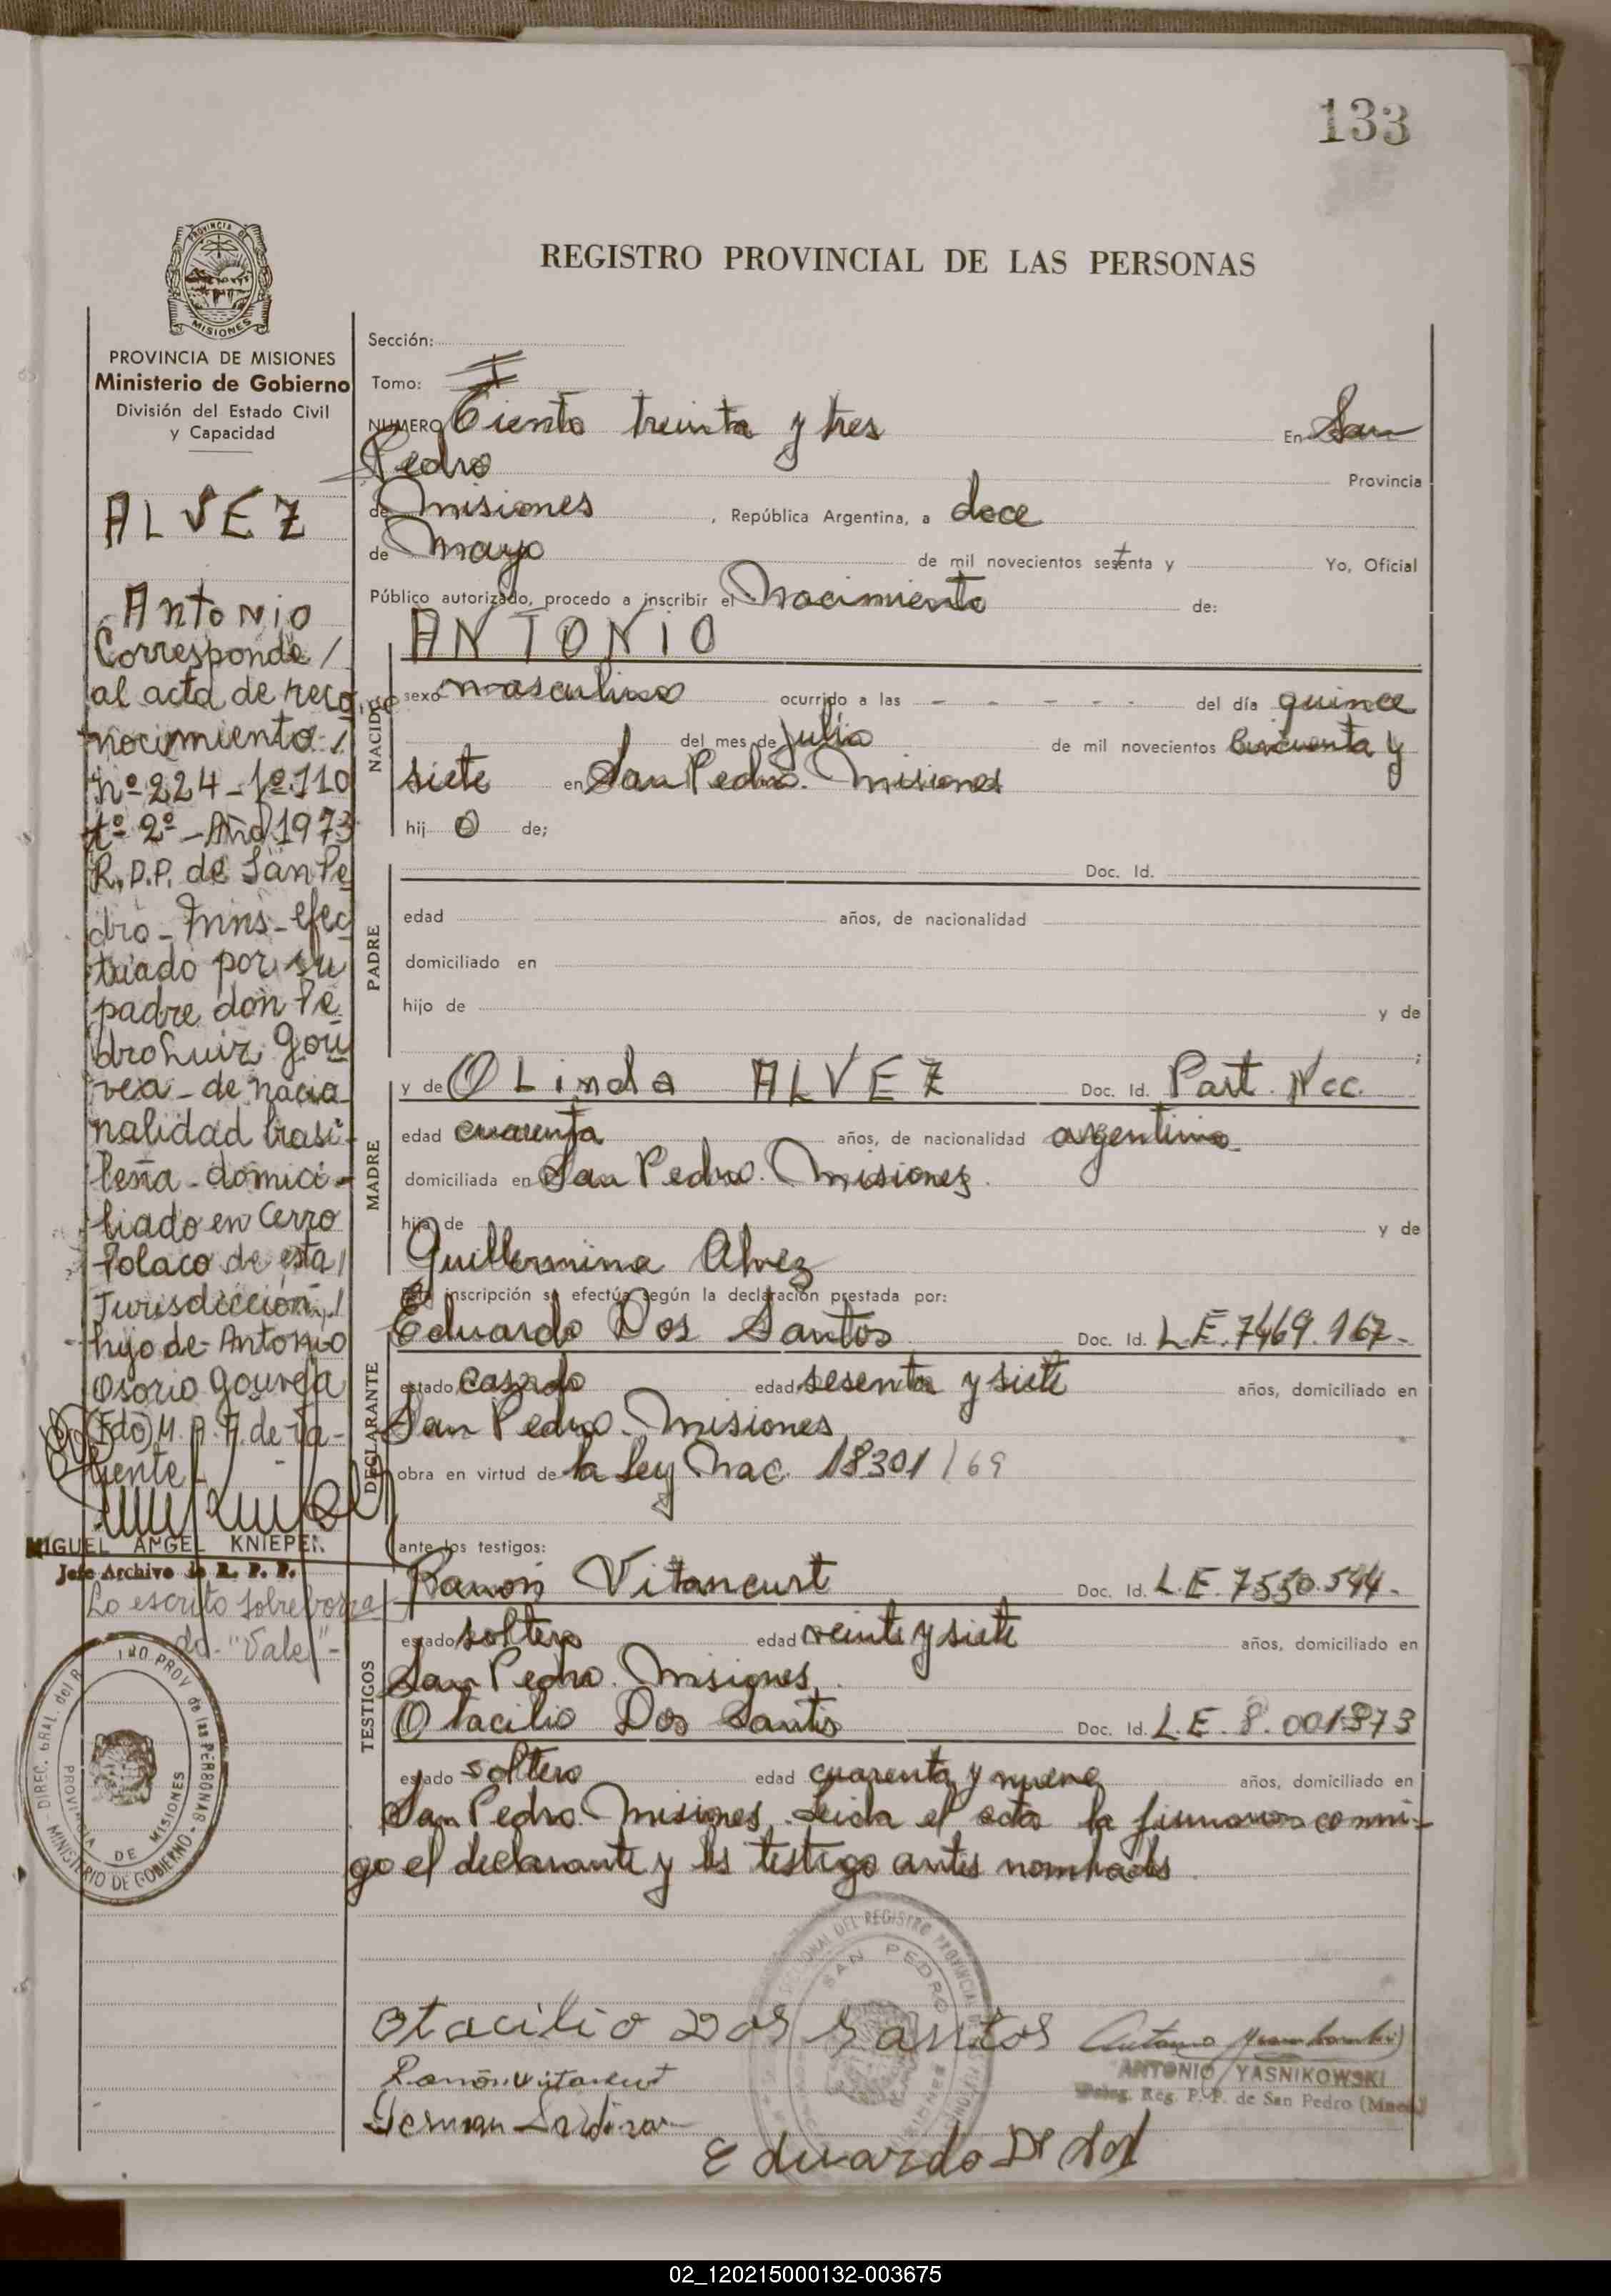 133
REGISTRO PROVINCIAL DE LAS PERSONAS
PROVINCIA DE
MISIONES
PROVINCIA DE MISIONES
Ministerio de Gobierno
División del Estado Civil
y Capacidad
ALVEZ
Antonio
Corresponde /
al acta de recog
nocimiento /
nº 224 - fº 110
tº 2º - Año 1973
R.P.P. de San Pe
dro - Mns - efec
tuado por su
padre don Pe
dro Luiz Gou
vea - de nacio
nalidad brasi-
leña - domici-
liado en Cerro
Polaco de esta /
Jurisdicción /
hijo de Antonio
Osorio Gouvea
(Fdo) M. A. A. de Va-
liente
MIGUEL ANGEL KNIEPEN
Jefe Archivo de R. P. P.
Lo escrito sobre borra
do - "Vale" -
DIREC. GRAL. del R PROV de las PERSONAS - MINISTERIO DE GOBIERNO -
PROVINCIA DE MISIONES
Sección:
Tomo: I
NUMERO Ciento treinta y tres En San
Pedro Provincia
de Misiones , República Argentina, a doce
de Mayo de mil novecientos setenta y Yo, Oficial
Público autorizado, procedo a inscribir el Nacimiento de:
ANTONIO
NACIDO
sexo masculino ocurrido a las - - - - - del día quince
del mes de Julio de mil novecientos cincuenta y
siete en San Pedro. Misiones
hij o de;
Doc. Id.
PADRE
edad años, de nacionalidad
domiciliado en
hijo de y de
;
MADRE
y de OLinda ALVEZ Doc. Id. Part. Nac.
edad cuarenta años, de nacionalidad argentina
domiciliada en San Pedro. Misiones
hija de y de
Guillermina Alvez
Esta inscripción se efectúa según la declaración prestada por:
DECLARANTE
Eduardo Dos Santos Doc. Id. L.E. 7469.167-
estado casado edad sesenta y siete años, domiciliado en
San Pedro. Misiones
obra en virtud de la Ley Nac. 18301/69
ante los testigos:
TESTIGOS
Ramon Vitancurt Doc. Id. L.E. 7530.544-
estado soltero edad veinte y siete años, domiciliado en
San Pedro. Misiones
Otacilio Dos Santos Doc. Id. L.E. 8.001373
estado soltero edad cuarenta y nueve años, domiciliado en
San Pedro. Misiones. Leida el acta la firmaron conmi-
go el declarante y los testigo antes nombrados
DEL REGISTRO PROVINCIAL
SAN PEDRO
Otacilio Dos Santos
Ramón Vitancurt
German
ANTONIO YASNIKOWSKI
Deleg. Reg. P. P. de San Pedro (Mnes.)
Eduardo
02_120215000132-003675